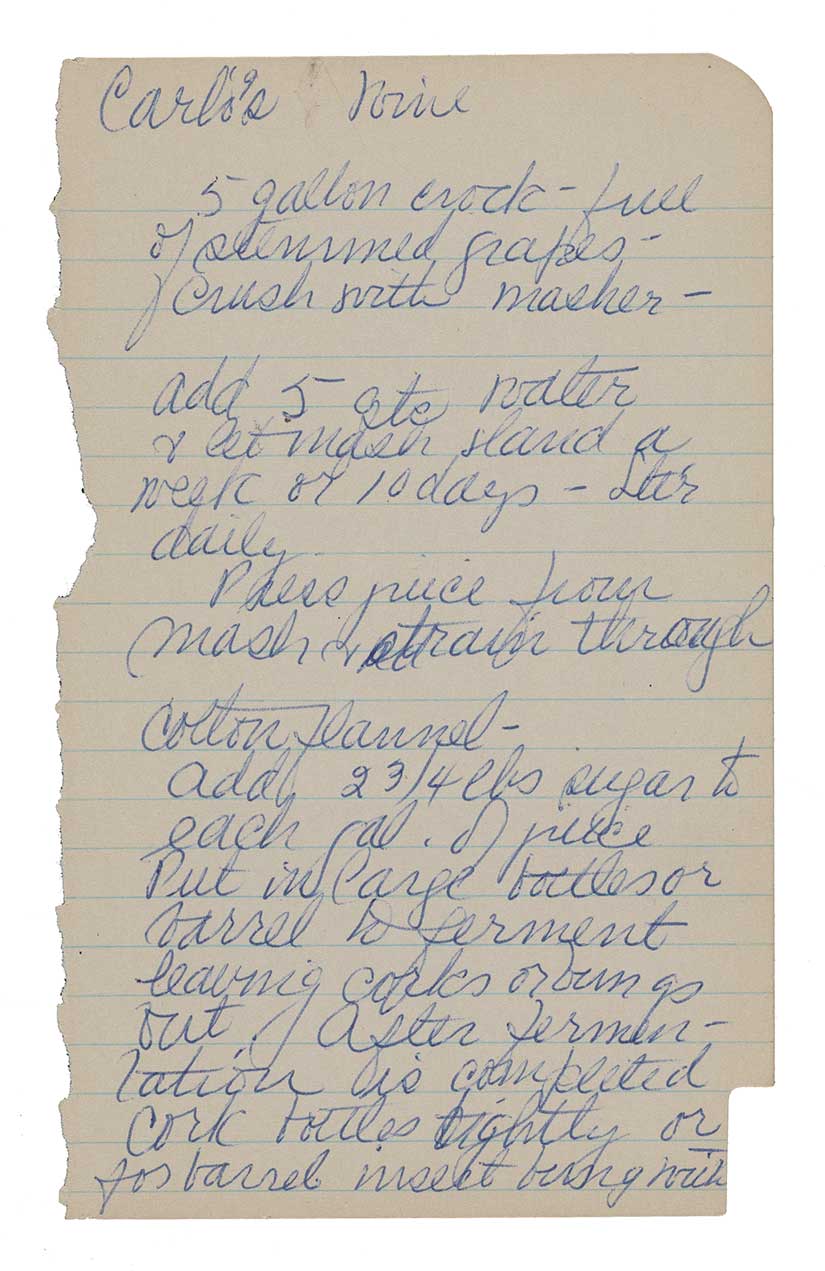 Carlo's Wine
5 gallon crock - full
of stemmed grapes -
Crush with masher -
add 5 qts water
& let mash stand a
week or 10 days - Stir
daily
Press juice from
mash & strain through
cotton flannel -
add 2 3/4 lbs sugar to
each gal. of juice
Put in large bottles or
barrel to ferment
leaving corks or bungs
out. After fermen-
tation is completed
cork bottles tightly or
for barrel insert bung with